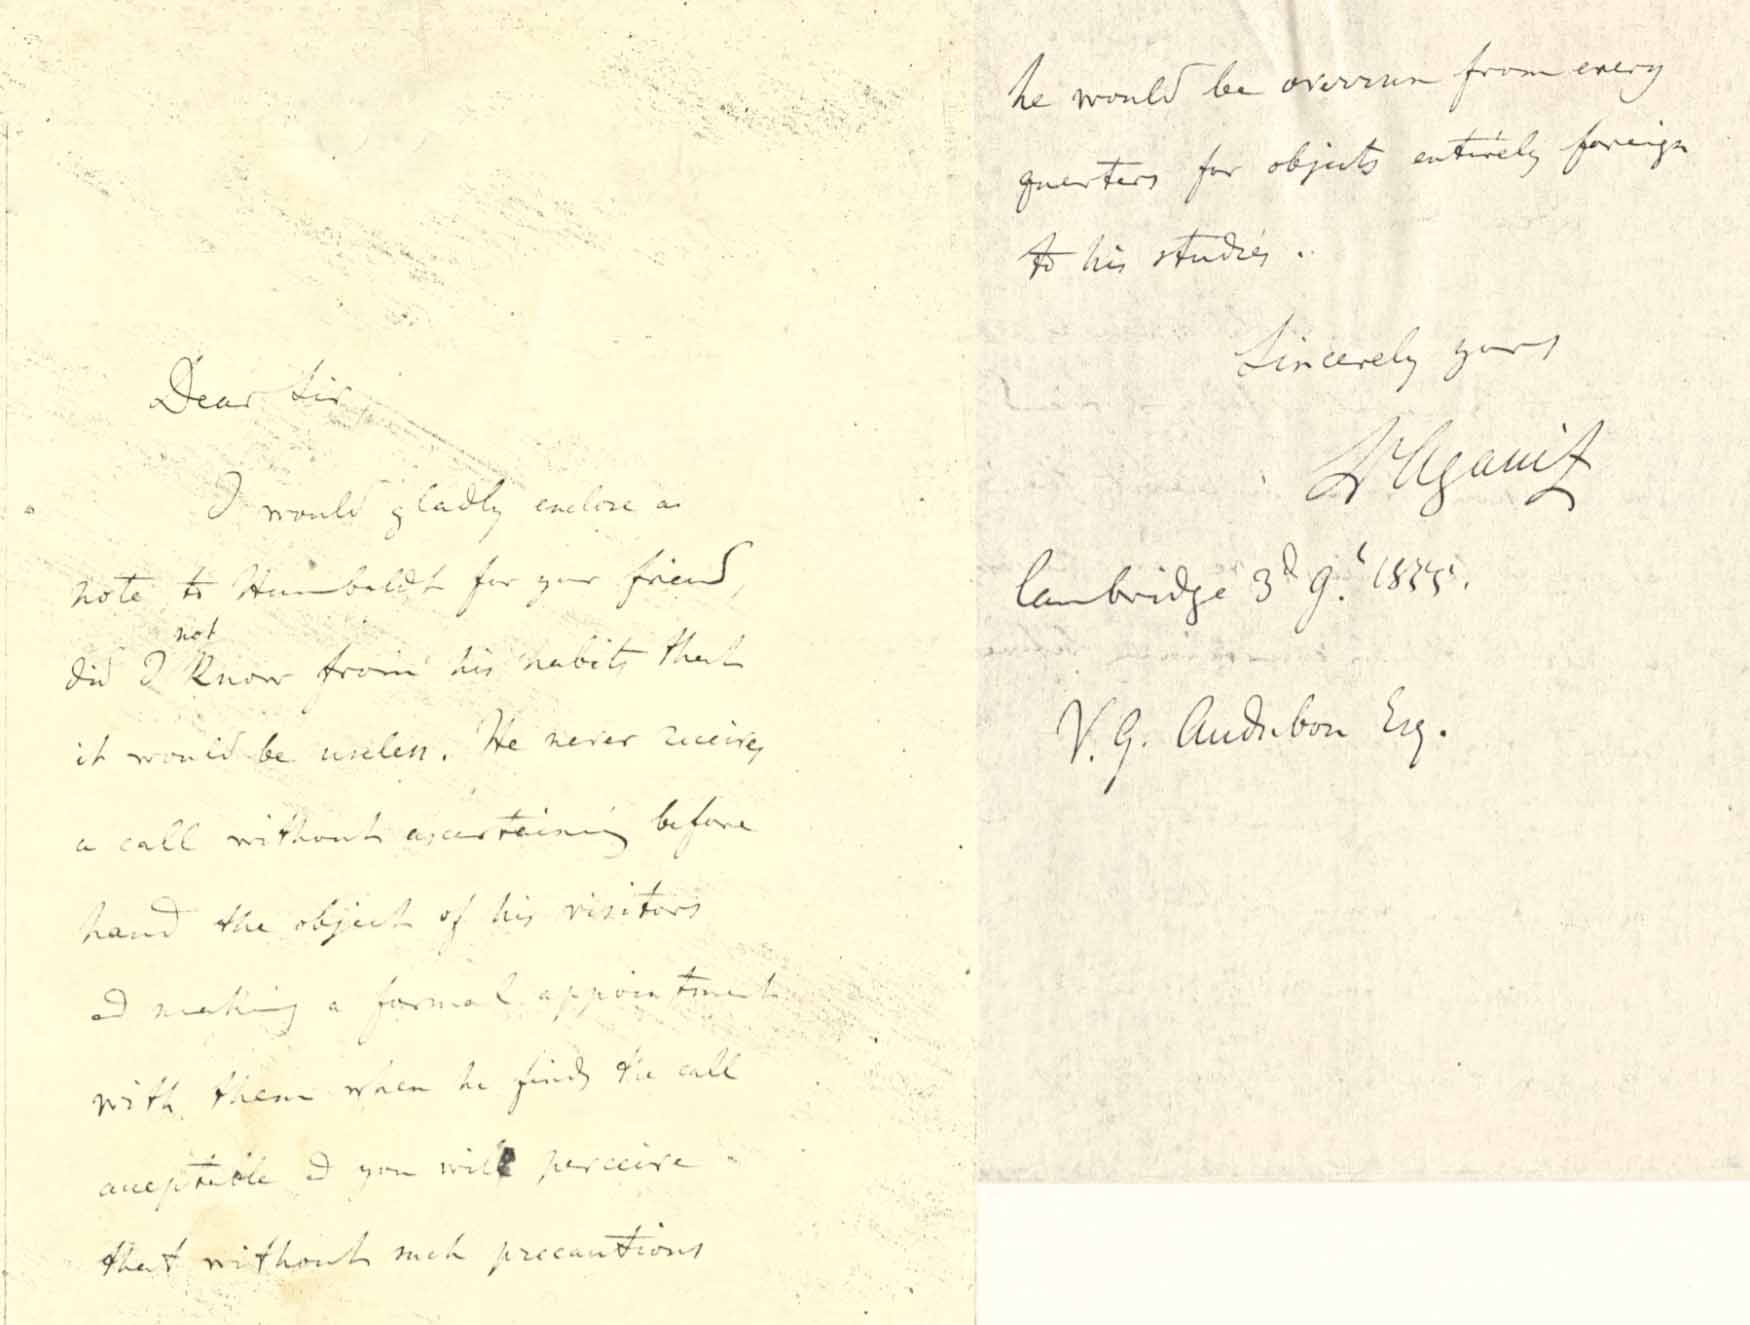 Dear Sir,
I would gladly enclose a
note to Humboldt for your friend,
not
did I know from his habits that
it would be useless. He never receives
a call without ascertaining before
hand the object of his visitors
& making a formal appointment
with them when he finds the call
acceptable & you will perceive
that without such precautions
he would be overrun from every
quarters for objects entirely foreign
to his studies.
Sincerely yours
L Agassiz
Cambridge 3d 1855.
V. G. Audubon Esq.